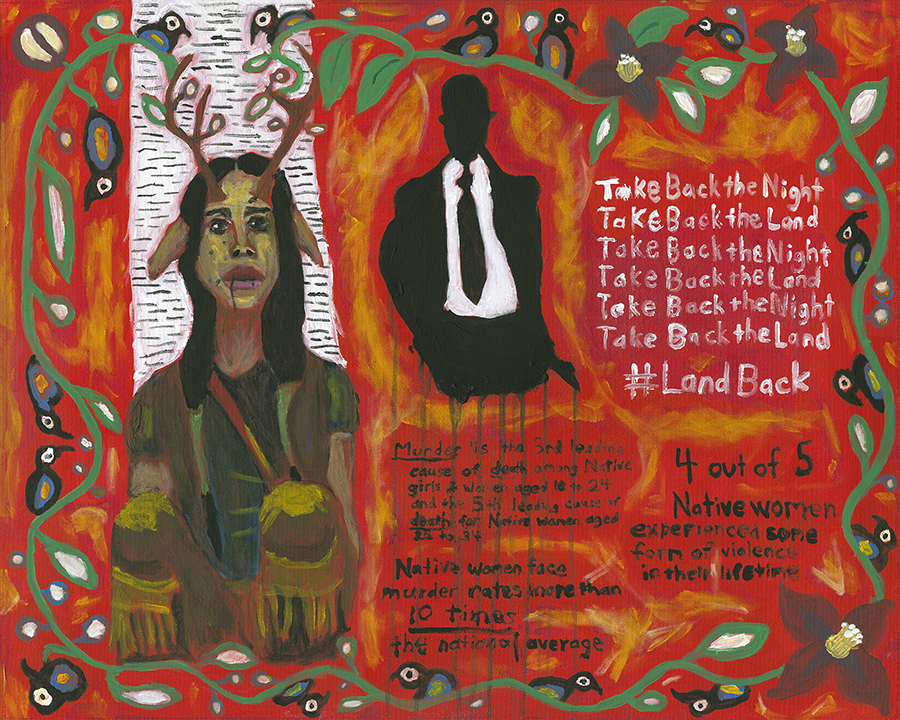 Take Back the Night
Take Back the Land
Take Back the Night
Take Back the Land
Take Back the Night
Take Back the Land
#LandBack
Murder is the 3rd leading
cause of death among Native
girls & women aged 18 to 24
and the 5th leading cause of
death for Native women aged
25 to 34
Native women face
murder rates more than
10 times
the national average
4 out of 5
Native women
experienced some
form of violence
in their lifetime